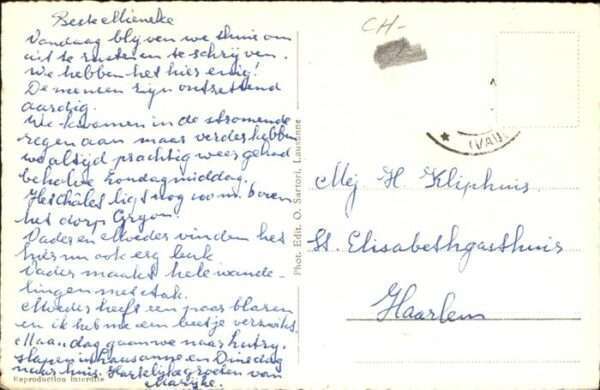 Beste Mieneke
Vandaag blijven we thuis om
uit te rusten en te schrijven.
We hebben het hier enig!
De mensen zijn ontzettend
aardig.
We kwamen in de stromende
regen aan maar verder hebben
we altijd prachtig weer gehad
behalve Zondagmiddag.
Het châlet ligt nog 100 m. boven
het dorp Gryon.
Vader en Moeder vinden het
hier nu ook erg leuk.
Vader maakt hele wande-
lingen met stok.
Moeder heeft een paar blaren
en ik heb me een beetje verzwikt.
Maandag gaan we naar
slapen in Lausanne en Dinsdag
naar huis. Hartelijke groeten van
Marijke.
Reproduction interdite
Phot. Edit. O. Sartori, Lausanne
CH-
(VAU
Mej H. Kliphuis.
St. Elisabethgasthuis
Haarlem